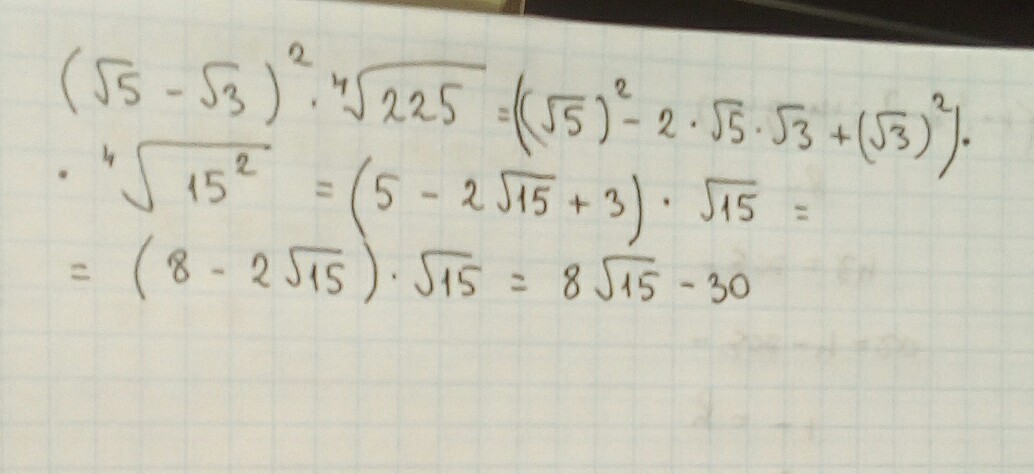 (√5 - √3)² · ⁴√225 = ((√5)² - 2 · √5 · √3 + (√3)²) ·
· ⁴√15² = (5 - 2√15 + 3) · √15 =
= (8 - 2√15) · √15 = 8√15 - 30